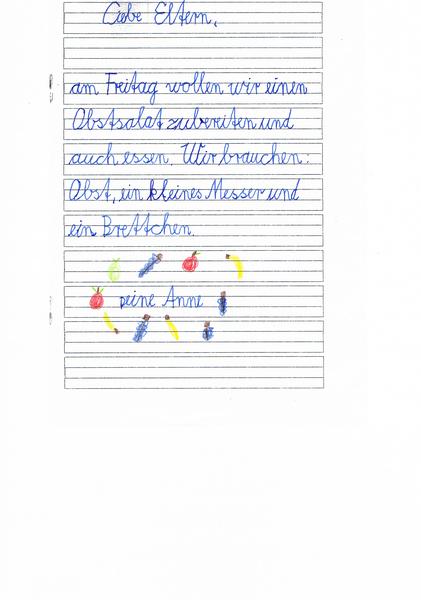 Liebe Eltern,
am Freitag wollen wir einen
Obstsalat zubereiten und
auch essen. Wir brauchen:
Obst, ein kleines Messer und
ein Brettchen.
Deine Anne